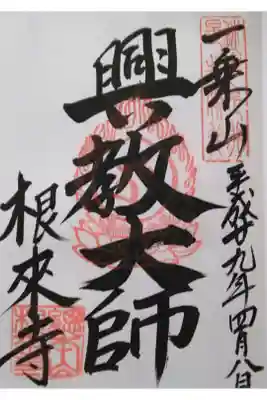 一乗山 平成廿九年四月八日
興教大師
根來寺